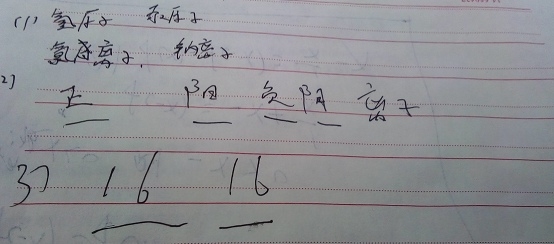 (1) 氢原子 汞原子
氯离子, 钠离子
2) 正 阳 负 阴 离子
3) 16 16